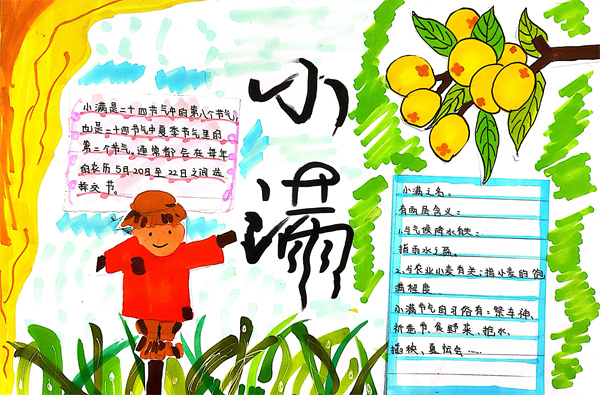 小满
小满是二十四节气中的第八个节气,
也是二十四节气中夏季节气里的
第二个节气。通常都会在每年
的农历5月20日至22日之间选
择交节。
小满之名。
有两层含义:
1、与气候降水有关:
指雨水之盈。
2、与农业小麦有关:指小麦的饱
满程度
小满节气的习俗有:祭车神、
祈蚕节、食野菜、抢水、
插秧、夏坛会……